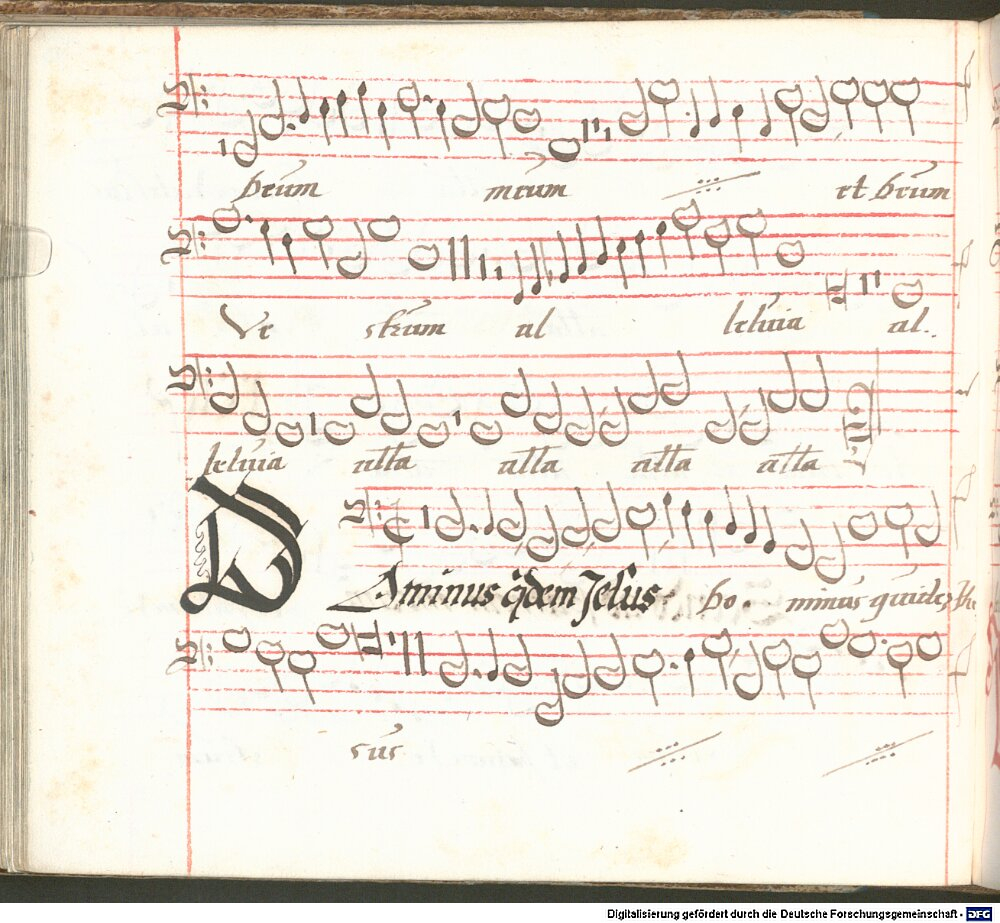 Deum meum et Deum
Ve strum al leluia al.
leluia alla alla alla alla
Dominus q̃dem Jesus Do. minus quidẽ
sus
Digitalisierung gefördert durch die Deutsche Forschungsgemeinschaft - DFG